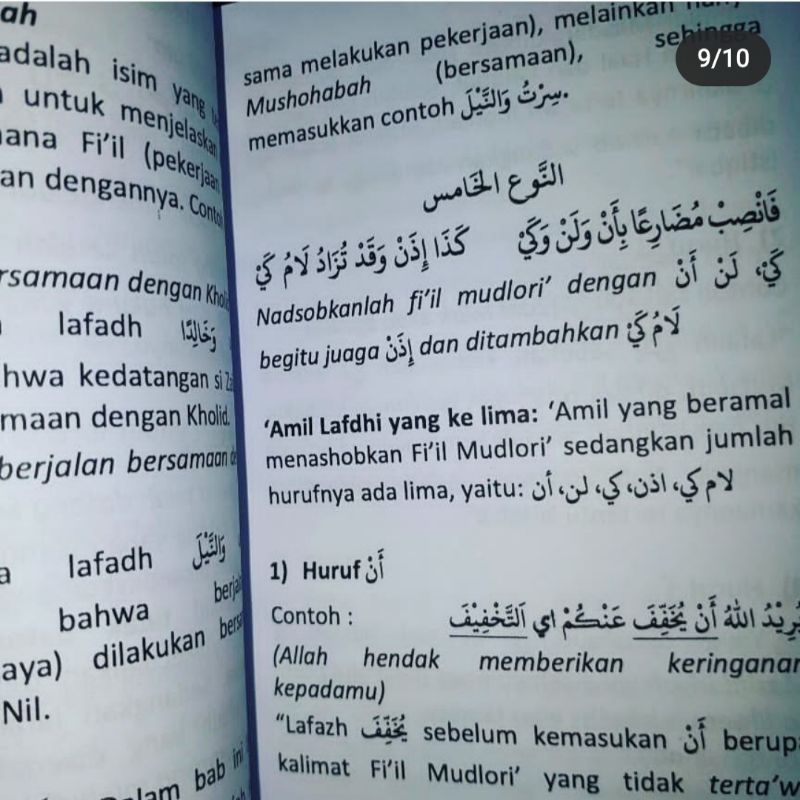 ah
adalah isim yang
untuk menjelaskan
Fi'il (pekerjaan
an dengannya. Contoh
rsamaan dengan Kholid
lafadh وَخَالِدًا
hwa kedatangan si
maan dengan Kholid.
berjalan bersamaan
a lafadh وَالنَّيْلَ
bahwa
aya) dilakukan
Nil.
Dalam bab ini
9/10
sama melakukan pekerjaan), melainkan
Mushohabah (bersamaan), sehingga
memasukkan contoh سِرْتُ وَالنَّيْلَ.
النَّوع الخَامس
فَانْصِبْ مُضَارِعًا بِأَنْ وَلَنْ وَكَيْ كَذَا إِذَنْ وَقَدْ تُزَادُ لَامُ كَيْ
Nadsobkanlah fi'il mudlori' dengan كَيْ، لَنْ أَنْ
begitu juaga إِذَنْ dan ditambahkan لَامُ كَيْ
'Amil Lafdhi yang ke lima: 'Amil yang beramal
menashobkan Fi'il Mudlori' sedangkan jumlah
hurufnya ada lima, yaitu: لام كي، اذن، كي، لن، أن
1) Huruf أَنْ
Contoh : يُرِيْدُ اللهُ أَنْ يُخَفِّفَ عَنْكُمْ اي اَلتَّخْفِيْفَ
(Allah hendak memberikan keringanan
kepadamu)
"Lafazh يُخَفِّفَ sebelum kemasukan أَنْ berupa
kalimat Fi'il Mudlori' yang tidak terta'w